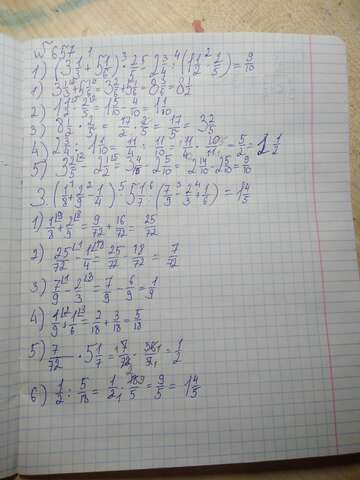 № 657
1) (3 1/3 + 5 1/6) · 2/5 - 2 3/4 : (1 1/2 - 2/5) = 9/10
1) 3 1/3 + 5 1/6 = 3 2/6 + 5 1/6 = 8 3/6 = 8 1/2
2) 1 1/2 - 2/5 = 1 5/10 - 4/10 = 1 1/10
3) 8 1/2 · 2/5 = 17/2 · 2/5 = 17/5 = 3 2/5
4) 2 3/4 : 1 1/10 = 11/4 : 11/10 = 11/4 · 10/11 = 5/2 =
5) 3 2/5 - 2 1/2 = 3 4/10 - 2 5/10 = 2 14/10 - 2 5/10 = 9/10
3. (1/8 + 2/9 - 1/4) · 5 1/7 : (7/9 - 2/3 + 1/6) = 1 4/5
1) 1/8 + 2/9 = 9/72 + 16/72 = 25/72
2) 25/72 - 1/4 = 25/72 - 18/72 = 7/72
3) 7/9 - 2/3 = 7/9 - 6/9 = 1/9
4) 1/9 + 1/6 = 2/18 + 3/18 = 5/18
5) 7/72 · 5 1/7 = 7/72 · 36/7 = 1/2
6) 1/2 : 5/18 = 1/2 · 18/5 = 9/5 = 1 4/5